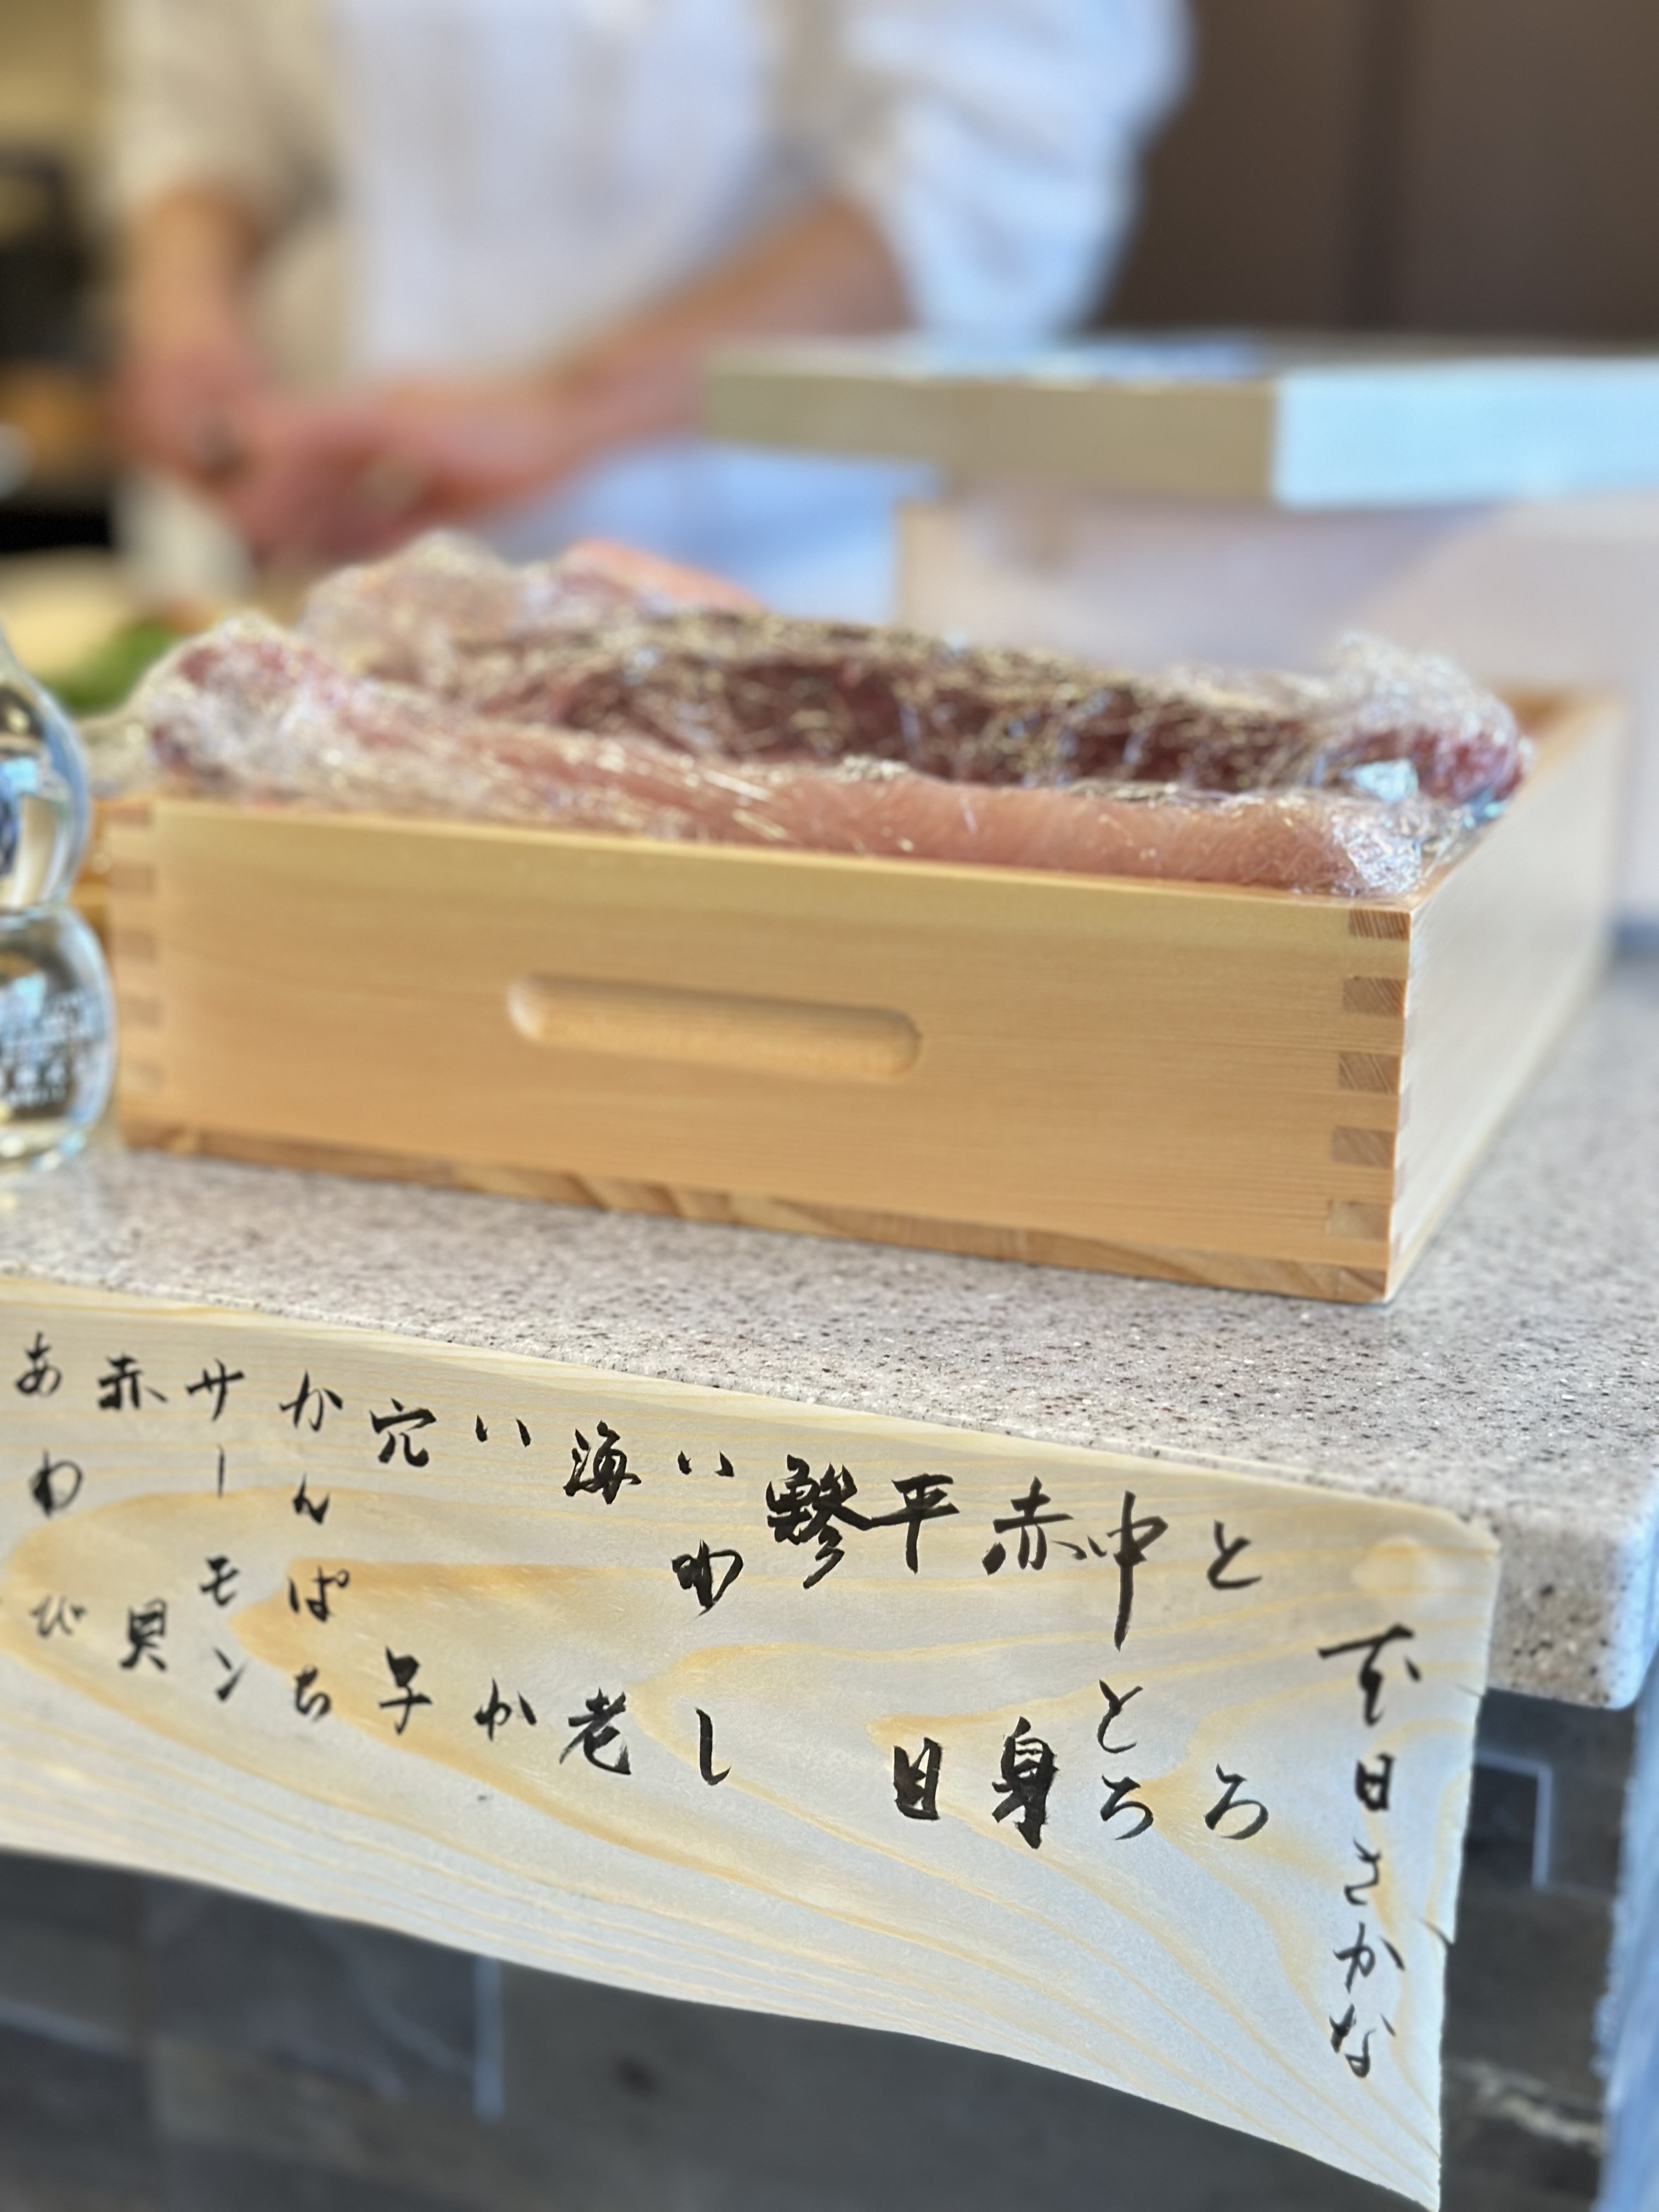 本日さかな
とろ
中とろ
赤身
平目
鯵
いわし
海老
いか
穴子
かんぱち
サーモン
赤貝
あわび